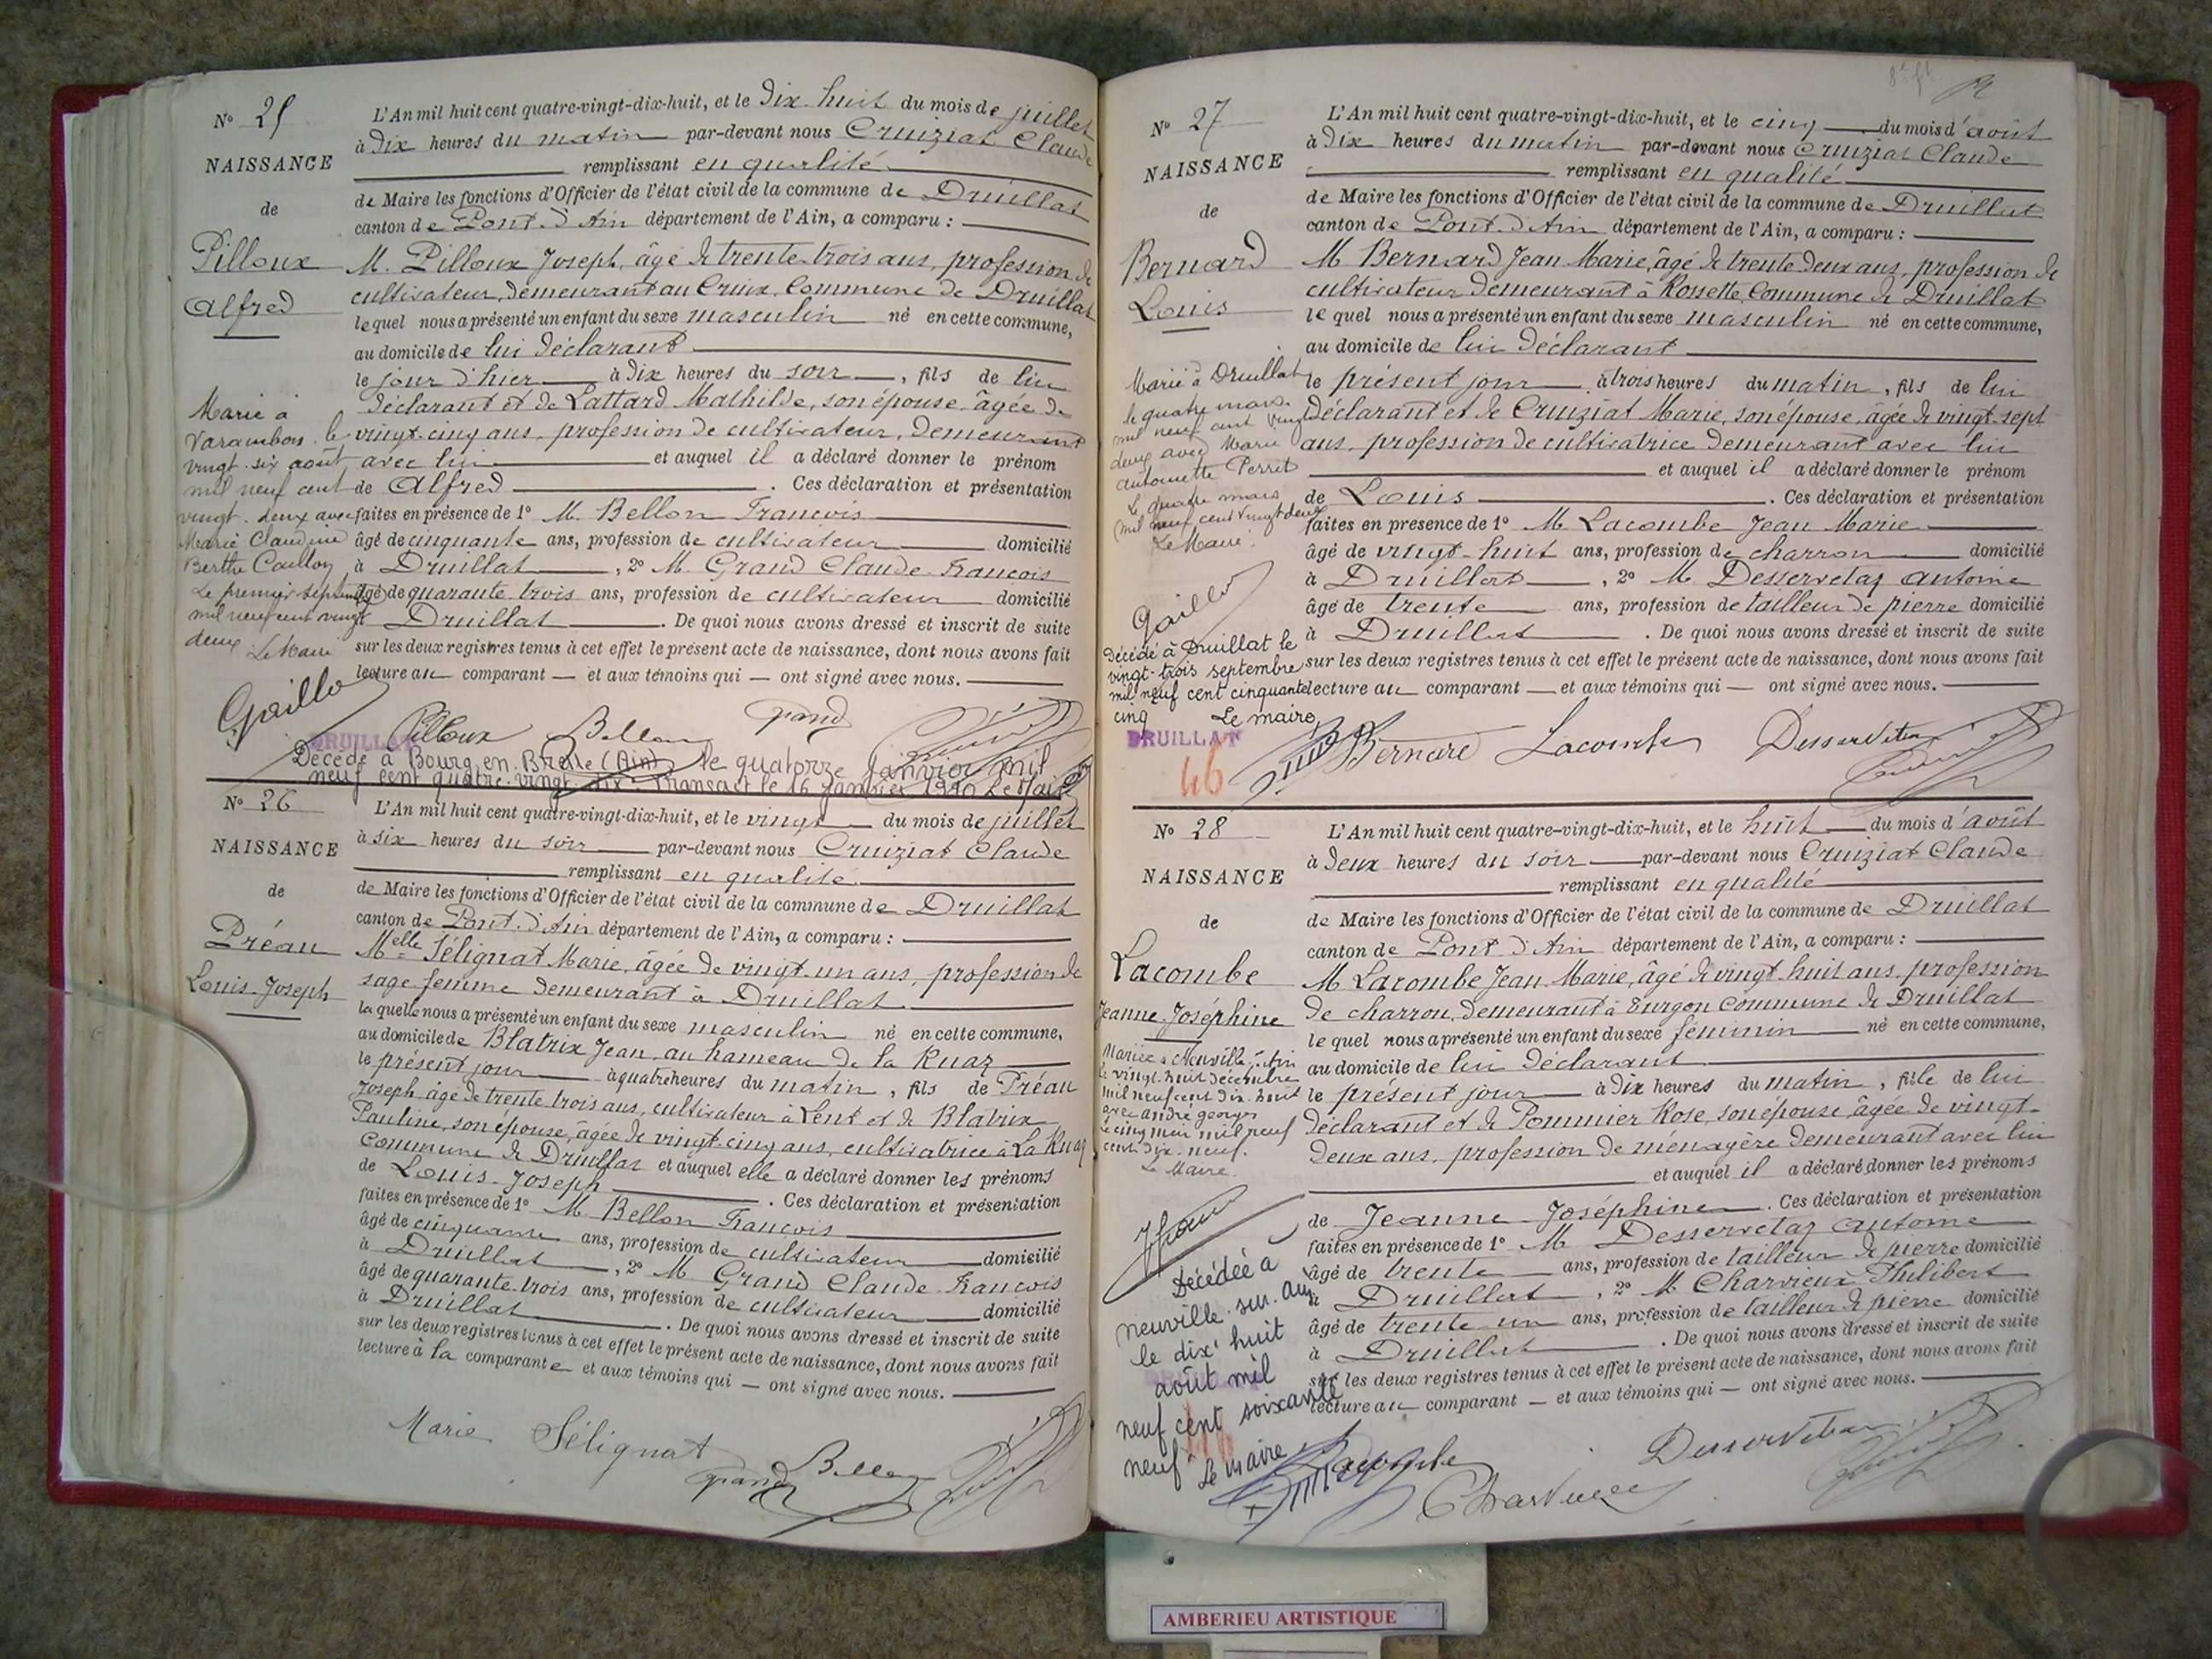 N° 25
NAISSANCE
de
Pilloux
Alfred
L'An mil huit cent quatre-vingt-dix-huit, et le dix huit du mois de juillet
à dix heures du matin par-devant nous Cruiziat Claude
remplissant en qualité
de Maire les fonctions d'Officier de l'état civil de la commune de Druillat
canton de Pont d'Ain département de l'Ain, a comparu :
M. Pilloux Joseph, âgé de trente trois ans, profession de
cultivateur, demeurant au Cruix, Commune de Druillat
lequel nous a présenté un enfant du sexe masculin né en cette commune,
au domicile de lui déclarant
le jour d'hier à dix heures du soir, fils de lui
déclarant et de Lattard Mathilde, son épouse âgée de
vingt cinq ans, profession de cultivateur, demeurant
avec lui et auquel il a déclaré donner le prénom
de Alfred. Ces déclaration et présentation
faites en présence de 1° M. Bellon François
âgé de cinquante ans, profession de cultivateur domicilié
à Druillat, 2° M. Grand Claude François
âgé de quarante trois ans, profession de cultivateur domicilié
Druillat. De quoi nous avons dressé et inscrit de suite
sur les deux registres tenus à cet effet le présent acte de naissance, dont nous avons fait
lecture au comparant — et aux témoins qui — ont signé avec nous.
Marié à
Varambon le
vingt six août
mil neuf cent
vingt deux avec
Marie Claudine
Berthe Caillon
Le premier septembre
mil neuf cent vingt
deux Le Maire
Gaillo
Pilloux Bellon Grand
DRUILLAT
Décédé à Bourg en Bresse (Ain) le quatorze janvier mil
neuf cent quatre-vingt dix. Transcrit le 16 janvier 1990 Le Maire
N° 26
NAISSANCE
de
Préau
Louis Joseph
L'An mil huit cent quatre-vingt-dix-huit, et le vingt du mois de juillet
à six heures du soir par-devant nous Cruiziat Claude
remplissant en qualité
de Maire les fonctions d'Officier de l'état civil de la commune de Druillat
canton de Pont d'Ain département de l'Ain, a comparu :
Melle Sélignat Marie, âgée de vingt un ans, profession de
sage femme demeurant à Druillat
laquelle nous a présenté un enfant du sexe masculin né en cette commune,
au domicile de Blatrix Jean, au hameau de la Ruaz
le présent jour à quatre heures du matin, fils de Préau
Joseph âgé de trente trois ans, cultivateur à Lent et de Blatrix
Pauline, son épouse, âgée de vingt cinq ans, cultivatrice à La Ruaz
Commune de Druillat et auquel elle a déclaré donner les prénoms
de Louis Joseph. Ces déclaration et présentation
faites en présence de 1° M. Bellon François
âgé de cinquante ans, profession de cultivateur domicilié
à Druillat, 2° M. Grand Claude François
âgé de quarante trois ans, profession de cultivateur domicilié
à Druillat. De quoi nous avons dressé et inscrit de suite
sur les deux registres tenus à cet effet le présent acte de naissance, dont nous avons fait
lecture à la comparante et aux témoins qui — ont signé avec nous.
Marie Sélignat
Grand Bellon
N° 27
NAISSANCE
de
Bernard
Louis
L'An mil huit cent quatre-vingt-dix-huit, et le cinq du mois d'août
à dix heures du matin par-devant nous Cruiziat Claude
remplissant en qualité
de Maire les fonctions d'Officier de l'état civil de la commune de Druillat
canton de Pont d'Ain département de l'Ain, a comparu :
M Bernard Jean Marie, âgé de trente deux ans, profession de
cultivateur demeurant à Rossette, Commune de Druillat
lequel nous a présenté un enfant du sexe masculin né en cette commune,
au domicile de lui déclarant
le présent jour à trois heures du matin, fils de lui
déclarant et de Cruiziat Marie, son épouse, âgée de vingt sept
ans, profession de cultivatrice demeurant avec lui
et auquel il a déclaré donner le prénom
de Louis. Ces déclaration et présentation
faites en présence de 1° M Lacombe Jean Marie
âgé de vingt-huit ans, profession de charron domicilié
à Druillat, 2° M. Desservetaz Antoine
âgé de trente ans, profession de tailleur de pierre domicilié
à Druillat. De quoi nous avons dressé et inscrit de suite
sur les deux registres tenus à cet effet le présent acte de naissance, dont nous avons fait
lecture au comparant — et aux témoins qui — ont signé avec nous.
Marié à Druillat
le quatre mars
mil neuf cent vingt
deux avec Marie
Antoinette Perret
Le quatre mars
mil neuf cent vingt deux
Le Maire.
Gaillo
Décédé à Druillat le
vingt-trois septembre
mil neuf cent cinquante
cinq Le maire
DRUILLAT
46
Bernard Lacombe Desservetaz
N° 28
NAISSANCE
de
Lacombe
Jeanne Joséphine
L'An mil huit cent quatre-vingt-dix-huit, et le huit du mois d'août
à deux heures du soir par-devant nous Cruiziat Claude
remplissant en qualité
de Maire les fonctions d'Officier de l'état civil de la commune de Druillat
canton de Pont d'Ain département de l'Ain, a comparu :
M Lacombe Jean Marie, âgé de vingt huit ans, profession
de charron, demeurant à Turgon Commune de Druillat
lequel nous a présenté un enfant du sexe féminin né en cette commune,
au domicile de lui déclarant
le présent jour à dix heures du matin, fille de lui
déclarant et de Pommier Rose, son épouse âgée de vingt-
deux ans, profession de ménagère demeurant avec lui
et auquel il a déclaré donner les prénoms
de Jeanne Joséphine. Ces déclaration et présentation
faites en présence de 1° M Desservetaz Antoine
âgé de trente ans, profession de tailleur de pierre domicilié
à Druillat, 2° M Charvieux Philibert
âgé de trente un ans, profession de tailleur de pierre domicilié
à Druillat. De quoi nous avons dressé et inscrit de suite
sur les deux registres tenus à cet effet le présent acte de naissance, dont nous avons fait
lecture au comparant — et aux témoins qui — ont signé avec nous.
Mariée à Neuville s/ Ain
le vingt-huit décembre
mil neuf cent dix-huit
avec André Georges
Le cinq mai mil neuf
cent dix-neuf.
Le Maire.
Décédée à
Neuville-sur-Ain
le dix huit
août mil
neuf cent soixante
neuf Le Maire
Lacombe Desservetaz
Charvieux
AMBERIEU ARTISTIQUE